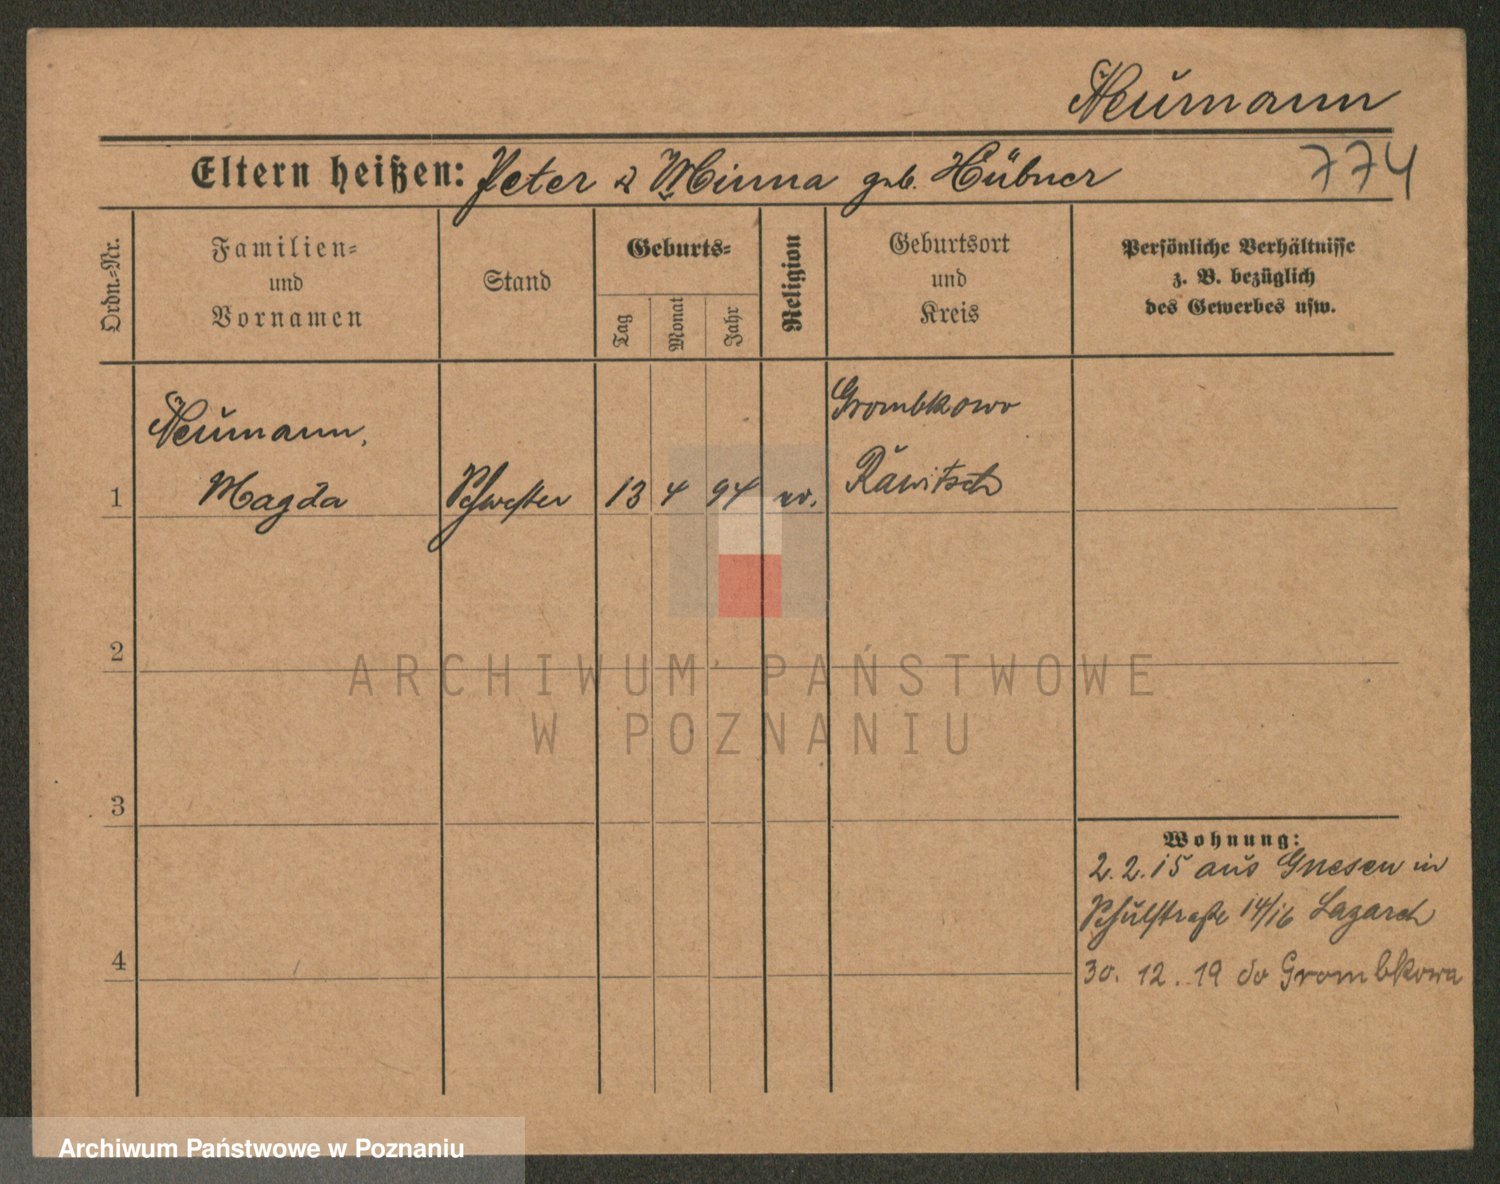 Neumann
Eltern heißen: Peter & Minna geb. Hübner
774
Ordn.=Nr.
Familien=
und
Vornamen
Stand
Geburts=
Tag
Monat
Jahr
Religion
Geburtsort
und
Kreis
Persönliche Verhältnisse
z. B. bezüglich
des Gewerbes usw.
Neumann,
Magda
Grombkowo
Rawitsch
1
Schwester
13
4
94
ev.
2
3
4
Wohnung:
2.2.15 aus Gnesen in
Schulstraße 14/16 Lazareth
30.12.19 do Grombkowa
ARCHIWUM PAŃSTWOWE
W POZNANIU
Archiwum Państwowe w Poznaniu